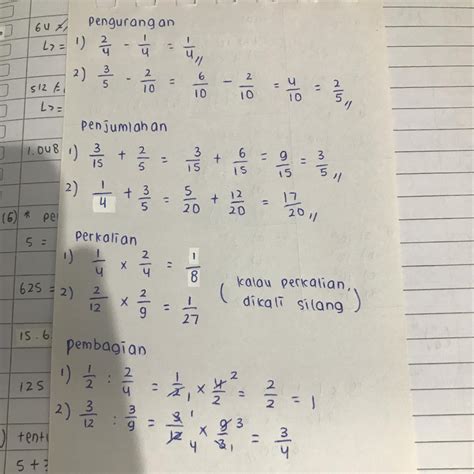 64
L> =
512
L> =
1.048
(6) * pe
5 =
625 =
15.6
125
) tent
5 + ?
Pengurangan
1) 2/4 - 1/4 = 1/4 //
2) 3/5 - 2/10 = 6/10 - 2/10 = 4/10 = 2/5 //
Penjumlahan
1) 3/15 + 2/5 = 3/15 + 6/15 = 9/15 = 3/5 //
2) 1/4 + 3/5 = 5/20 + 12/20 = 17/20 //
Perkalian
1) 1/4 × 2/4 = 1/8
2) 2/12 × 2/9 = 1/27
( kalau perkalian,
dikali silang )
pembagian
1) 1/2 : 2/4 = 1/2 1 × 4/2 2 = 2/2 = 1
2) 3/12 : 3/9 = 3/12 1 4 × 9/3 3 1 = 3/4